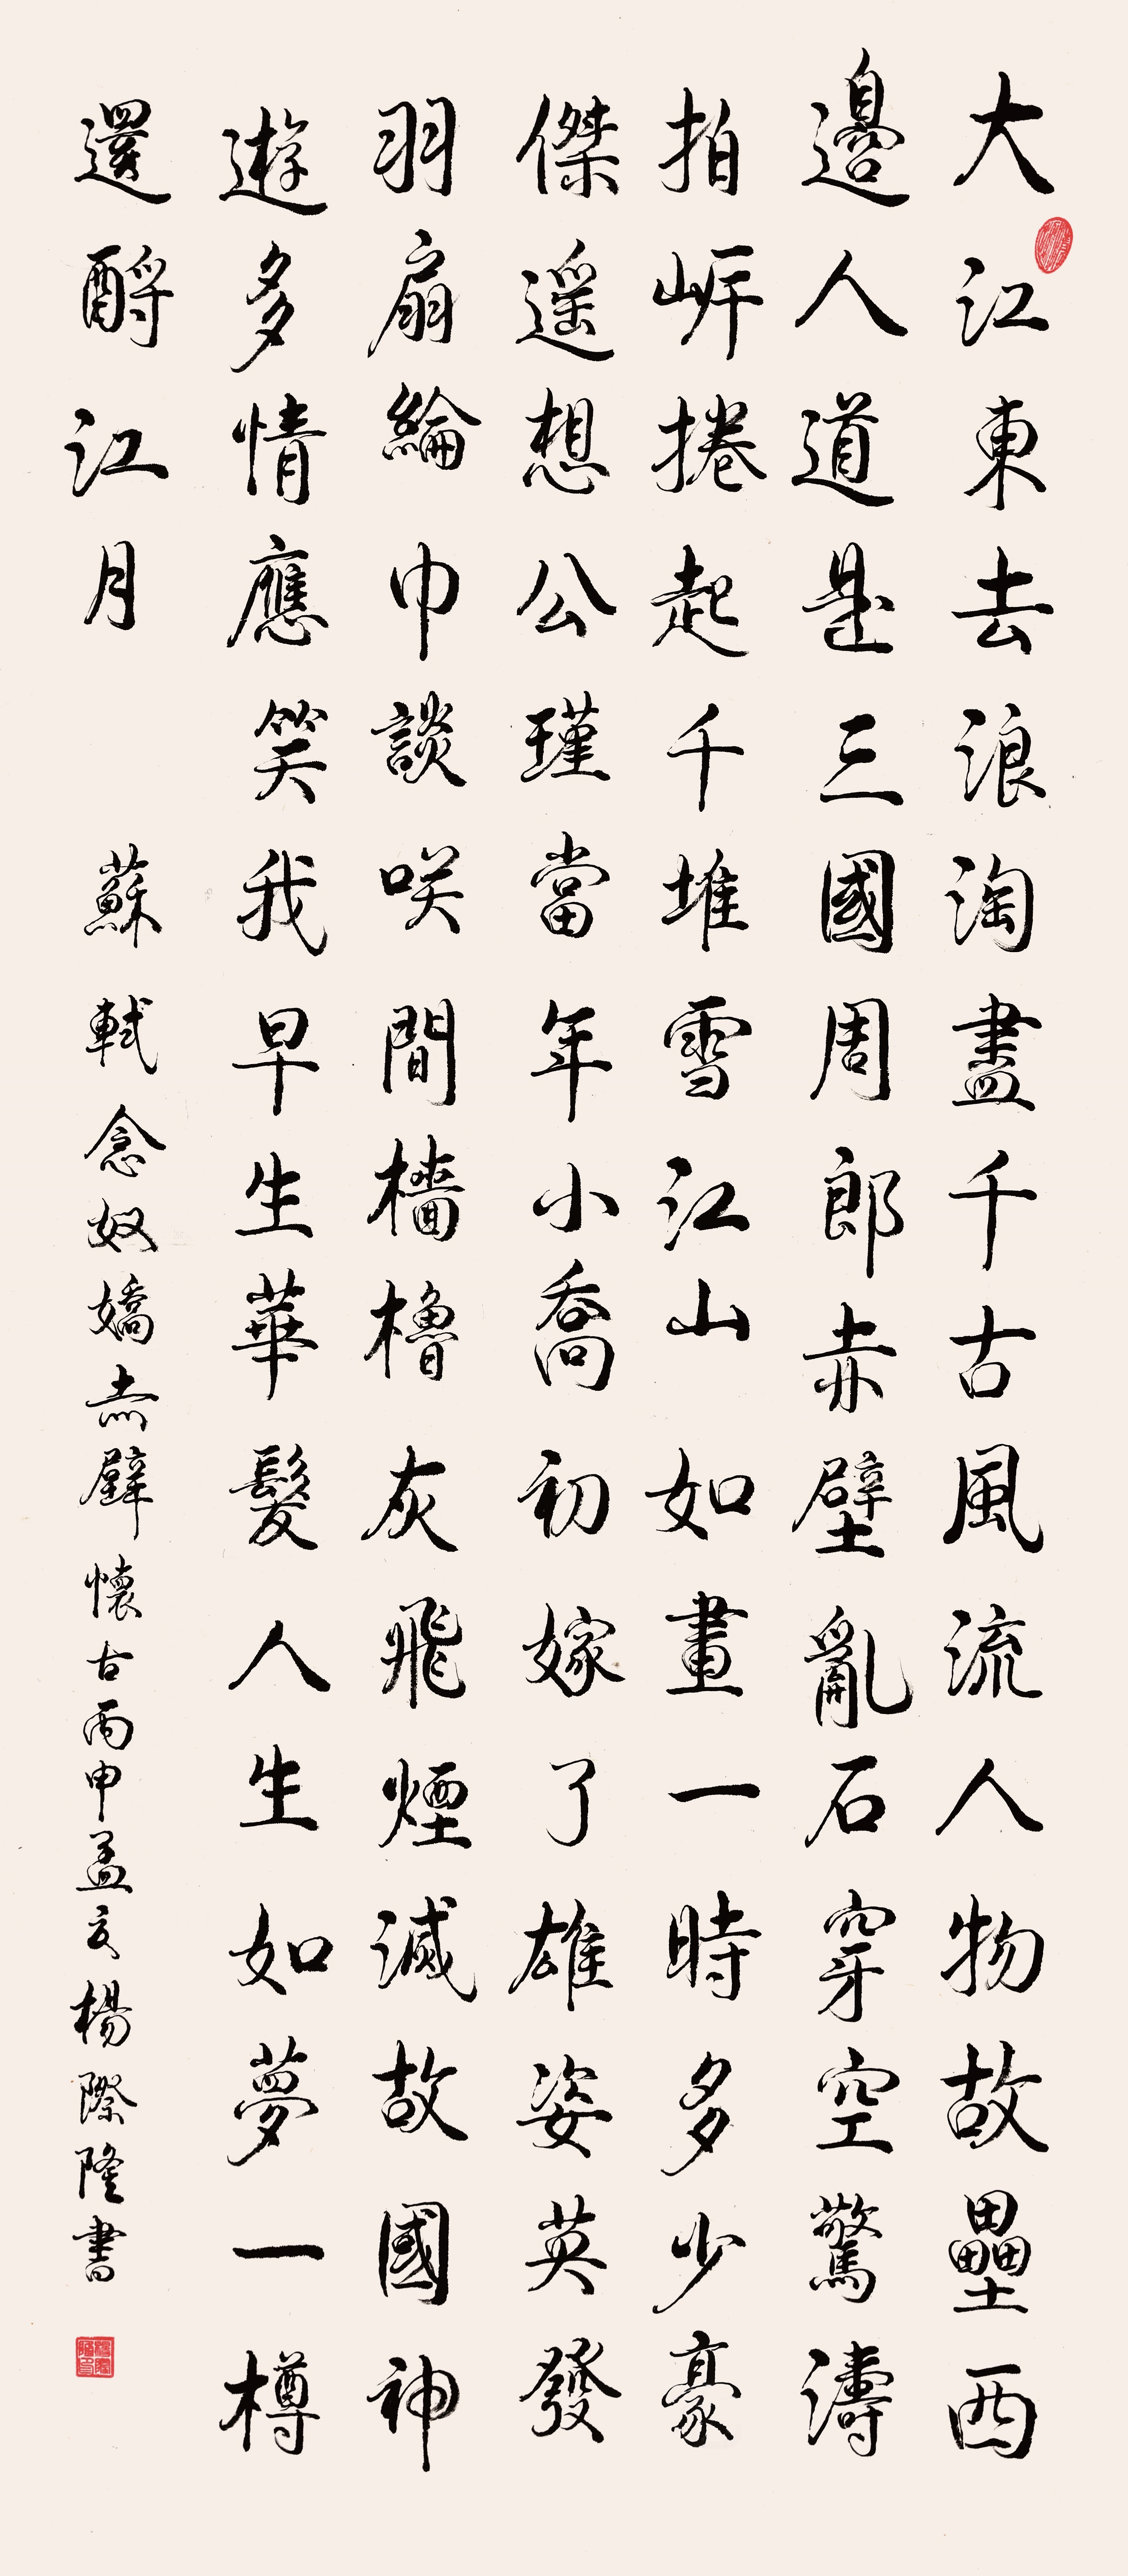 大江東去浪淘盡千古風流人物故壘西
邊人道是三國周郎赤壁亂石穿空驚濤
拍岸捲起千堆雪江山如畫一時多少豪
傑遥想公瑾當年小喬初嫁了雄姿英發
羽扇綸巾談咲間檣櫓灰飛煙滅故國神
遊多情應笑我早生華髮人生如夢一樽
還酹江月
蘇軾念奴嬌赤壁懷古丙申孟冬楊際隆書